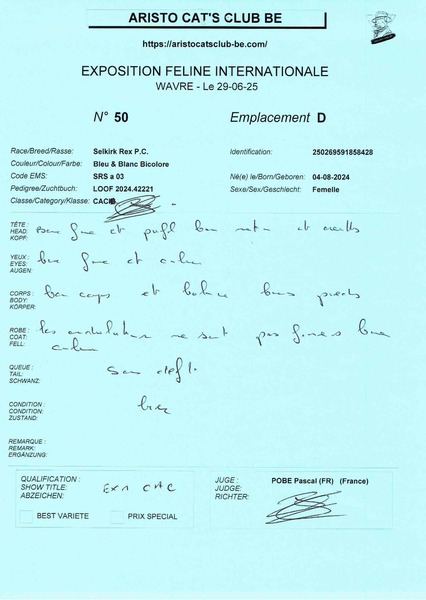 ARISTO CAT'S CLUB BE
https://aristocatsclub-be.com/
EXPOSITION FELINE INTERNATIONALE
WAVRE - Le 29-06-25
N° 50 Emplacement D
Race/Breed/Rasse: Selkirk Rex P.C. Identification: 250269591858428
Couleur/Colour/Farbe: Bleu & Blanc Bicolore
Code EMS: SRS a 03 Né(e) le/Born/Geboren: 04-08-2024
Pedigree/Zuchtbuch: LOOF 2024.42221 Sexe/Sex/Geschlecht: Femelle
Classe/Category/Klasse: CACIB
TÊTE :
HEAD: et
KOPF:
YEUX :
EYES: et
AUGEN:
CORPS : bon corps et pieds
BODY:
KÖRPER:
ROBE : les ondulations ne sont pas
COAT:
FELL:
QUEUE :
TAIL:
SCHWANZ:
CONDITION :
CONDITION:
ZUSTAND:
REMARQUE :
REMARK:
ERGÄNZUNG:
QUALIFICATION :
SHOW TITLE: EX1 CAC
ABZEICHEN:
BEST VARIETE PRIX SPECIAL
JUGE : POBE Pascal (FR) (France)
JUDGE:
RICHTER: